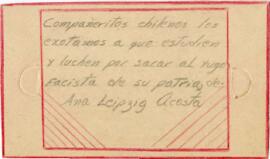 Compañeritos chilenos les
exotamos a que estudien
y luchen por sacar al
facista de su patria de:
Ana Leipzig Acosta